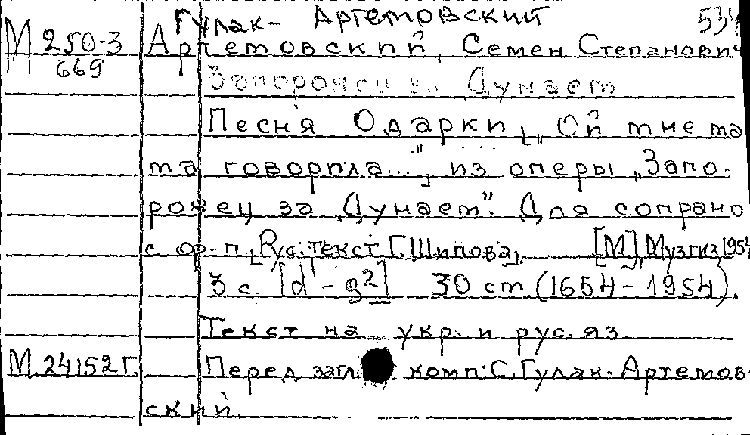 Гулак- Артемовский 534
М 250-3 Артемовский, Семен Степанович
669
Запорожец за Дунаем
Песня Одарки „Ой мне ма
ма говорила...", из оперы „Запо-
рожец за Дунаем". Для сопрано
с ор-п. Рус. текст Г. Шипова. [М] Музгиз 1954
3 с. [d' - g²] 30 cm (1654-1954).
Текст на укр. и рус. яз
М 24152 Г. Перед загл комп: С. Гулак-Артемов-
ский.